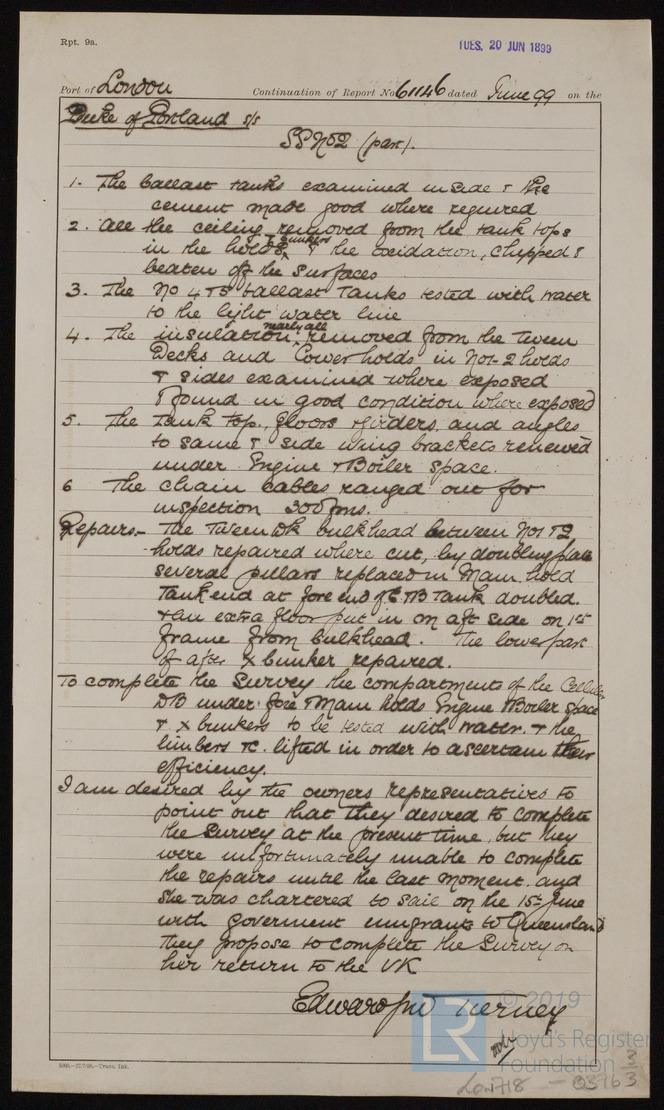 Rpt. 9a.
TUES. 20 JUN 1899
Port of London Continuation of Report No 61146 dated June 99 on the
Duke of Portland s/s
SS No 2 (part).
1. The ballast tanks examined inside & the
cement made good where required
2. All the ceiling removed from the tank tops
in the holds & bunkers & the oxidation, chipped &
beaten off the surfaces
3. The No 4 & 5 ballast Tanks tested with water
to the light water line
4. The insulation nearly all removed from the Tween
Decks and Lower holds in Nos 1-2 holds
& sides examined where exposed
& found in good condition where exposed
5. The Tank top, floors girders and angles
to same & side wing brackets renewed
under Engine & Boiler space.
6 The chain cables ranged out for
inspection 300 fms.
Repairs.- The Tween Dk bulkhead between Nos 1 & 2
holds repaired where cut, by doubling plate
several pillars replaced in Main hold
Tank end at fore end of DB Tank doubled.
& an extra floor put in on aft side on 1st
frame from bulkhead. The lower part
of after X bunker repaired.
To complete the Survey the compartments of the Cellular
DB under fore & Main holds Engine & Boiler space
& X bunkers to be tested with water. & the
limbers &c. lifted in order to ascertain their
efficiency.
I am desired by the owners representatives to
point out that they desired to complete
the Survey at the present time, but they
were unfortunately unable to complete
the repairs until the last moment. and
she was chartered to sail on the 15th June
with Goverment emigrants to Queensland
they propose to complete the Survey on
her return to the UK
Edward Tierney
LR © 2019
Lloyd's Register
Foundation
Lon718 - 0376 3/3